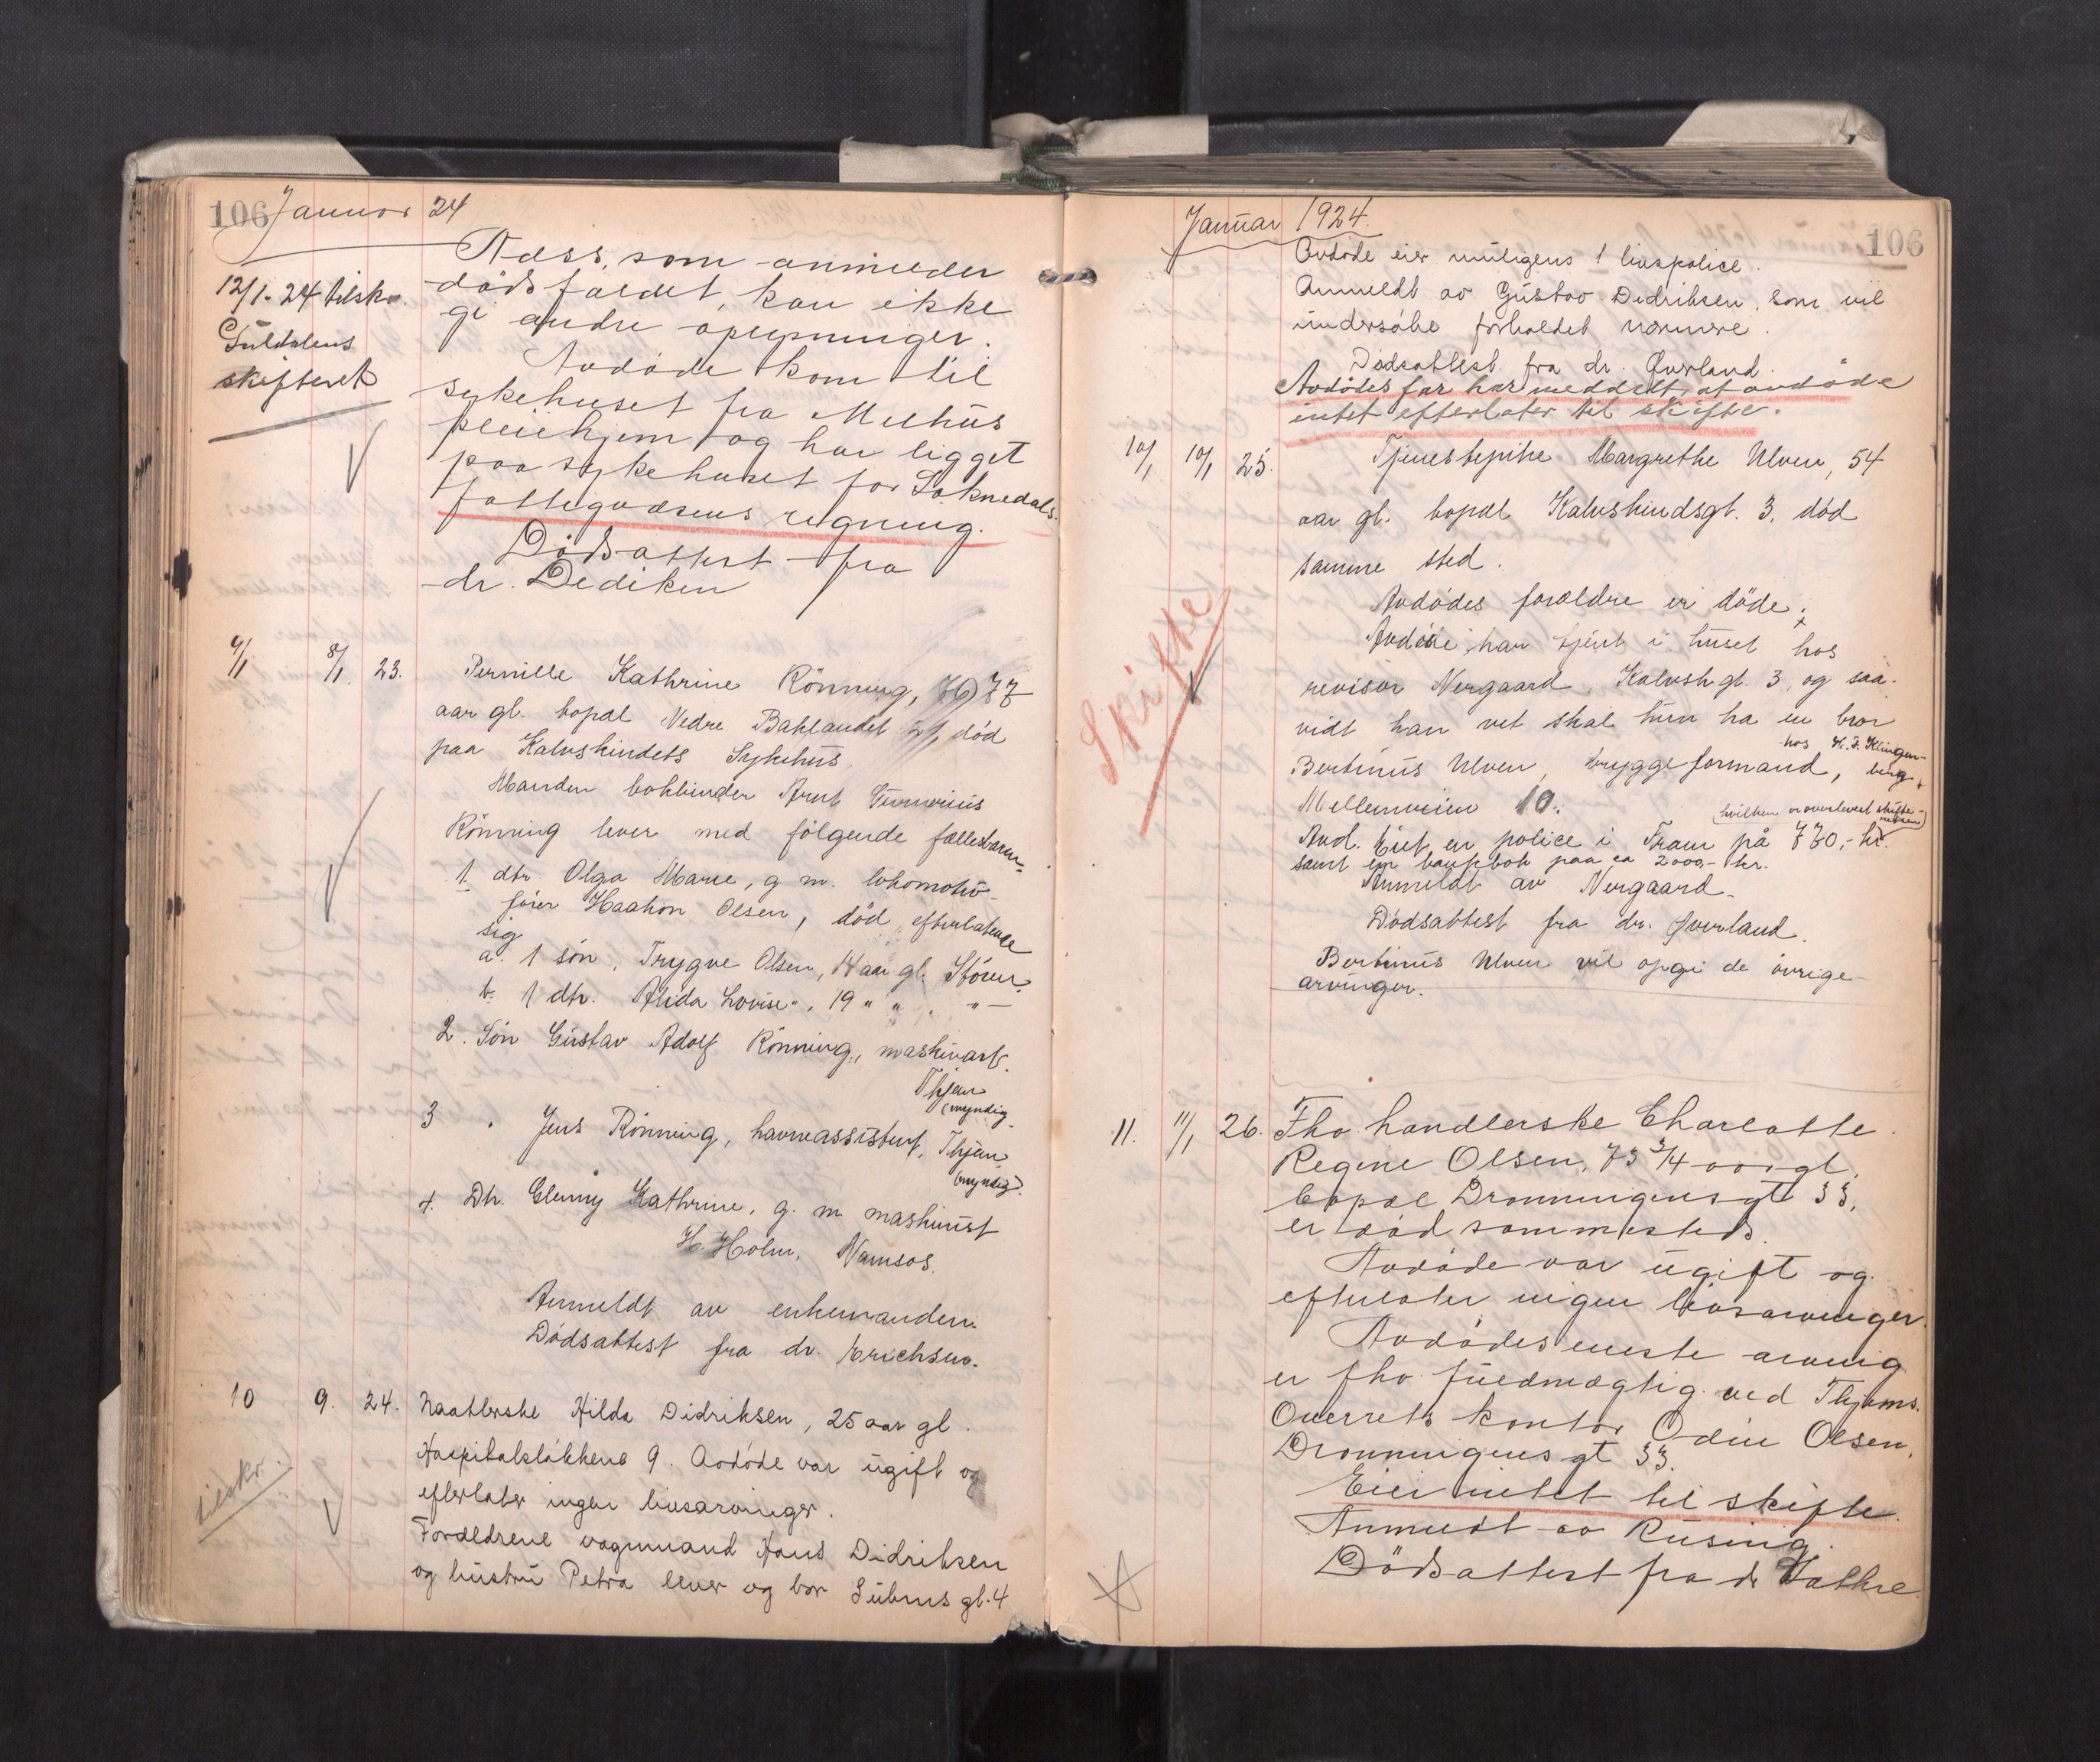 106 Januar 24
Næss, som anmelder
dödsfaldet, kan ikke
gi andre oplysninger.
12/1-24 tilskr.
Guldalens
skifteret
Avdöde kom til
sykehuset fra Melhus
pleiehjem og har ligget
paa sykehuset for Soknedals
fattigvæsens regning.
Dödsattest fra
dr. Dediken
9/1 8/1 23. Pernille Kathrine Rönning, 77
aar gl. bopæl Nedre Baklandet, död
paa Kalvskindets Sykehus.
Manden bokbinder Arnt
Rönning lever med fölgende fællesbarn
1. dtr. Olga Marie, g m. lokomotiv-
förer Haakon Olsen, död, efterlatende
sig
a. 1 sön, Trygve Olsen, 14 aar gl. Stören.
b. 1 dtr. Alida Lovise ", 19 " " " —
2. Sön Gustav Adolf Rönning, maskinarb.
Thjem
(myndig
3 " Jens Rönning, havneassistent, Thjem
(myndig).
4. Dtr. Kathrine, g. m maskinist
H. Holm, Namsos.
Anmeldt av enkemanden.
Dödsattest fra dr. Erichsen.
10 9. 24. Naatlerske Hilda Didriksen, 25 aar gl.
Hospitalslökkene 9. Avdöde var ugift og
efterlater ingen livsarvinger.
tilskr.
Forældrene vognmand Hans Didriksen
og hustru Petra lever og bor gt. 4
Januar 1924.
106
Avdöde eier muligens 1 livspolice.
Anmeldt av Gustav Didriksen, som vil
undersöke forholdet nærmere.
Dödsattest fra dr. Överland.
Avdödes far har meddelt, at avdöde
intet efterlater til skifte.
10/1 10/1 25. Tjenestepike Margrethe Ulven, 54
aar gl. bopæl Kalvskindsgt. 3, död
samme sted.
Avdödes forældre er döde.
Skifte
Avdöde har tjent i huset hos
revisor Nergaard, Kalvsk gt. 3, og saa-
vidt han vet skal hun ha en bror
Bertinus Ulven, bryggeformand, hos H. F. Klingen-
berg,
Mellemveien 10.
(hvilken er overlevert skifte-
retten)
Avd. eiet en police i Fram på 770,- kr.
samt en bankbok paa ca 2000,- kr.
Anmeldt av Nergaard.
Dödsattest fra dr. Överland.
Bertinus Ulven vil opgi de övrige
arvinger.
11. 11/1 26. Fhv. handlerske Charlotte
Regine Olsen, 73 3/4 aar gl,
bopæl Dronningensgt 33,
er död sammesteds.
Avdöde var ugift og
efterlater ingen livsarvinger.
Avdödes eneste arving
er fhv. fuldmægtig ved Thjems
Overrets kontor Odin Olsen,
Dronningens gt 33.
Eier intet til skifte.
Anmeldt av Rusing.
Dödsattest fra dr Hatkre